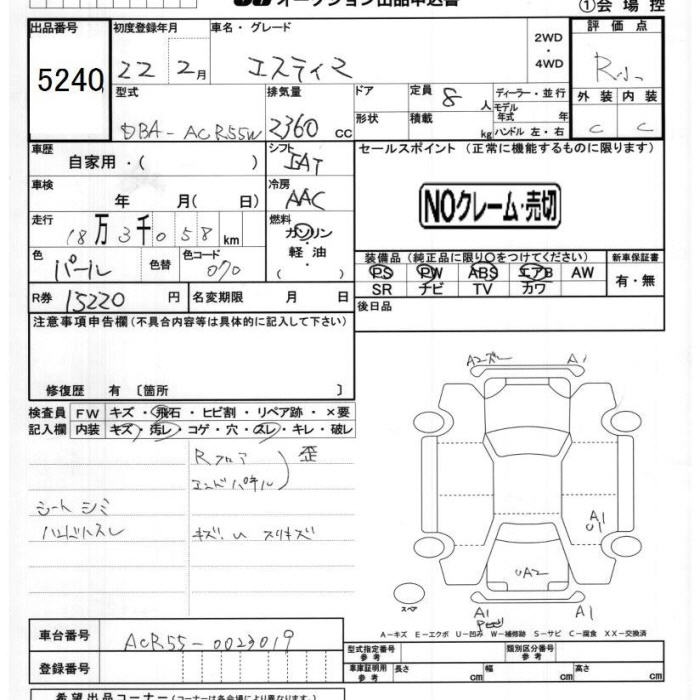 オークション出品申込書
①会場控
出品番号 初度登録年月 車名・グレード 2WD・4WD 評価点
5240 22 2月 エスティマ R小
外装 内装
C C
型式 排気量 ドア 定員 8人 ディーラー・並行
DBA-ACR55W 2360cc 形状 積載 kg モデル年式 年 ハンドル 左・右
車歴 シフト セールスポイント (正常に機能するものに限ります)
自家用・( ) IAT
車検 年 月( 日) 冷房 AAC
NOクレーム・売切
走行 18万3千058km 燃料 ガソリン・軽油・( )
色 パール 色替 色コード 070
装備品 (純正品に限り○をつけてください) 新車保証書
PS PW ABS エアB AW 有・無
SR ナビ TV カワ
R券 15220円 名変期限 月 日 後日品
注意事項申告欄 (不具合内容等は具体的に記入して下さい)
修復歴 有 〔箇所 〕
検査員 FW キズ・飛石・ヒビ割・リペア跡・×要
記入欄 内装 キズ・汚レ・コゲ・穴・スレ・キレ・破レ
Rフロア
エンドパネル 歪
シートシミ
ハンドルスレ キズ.U スリキズ
A2 A1
A1
U1
UA2
スペア A1 A1
A-キズ E-エクボ U-凹み W-補修跡 S-サビ C-腐食 XX-交換済
車台番号 ACR55-0023019
型式指定番号 参考 類別区分番号 参考
登録番号 車庫証明用 参考 長さ cm 幅 cm 高さ cm
希望出品コーナー (コーナー名は各会場により異なります。)